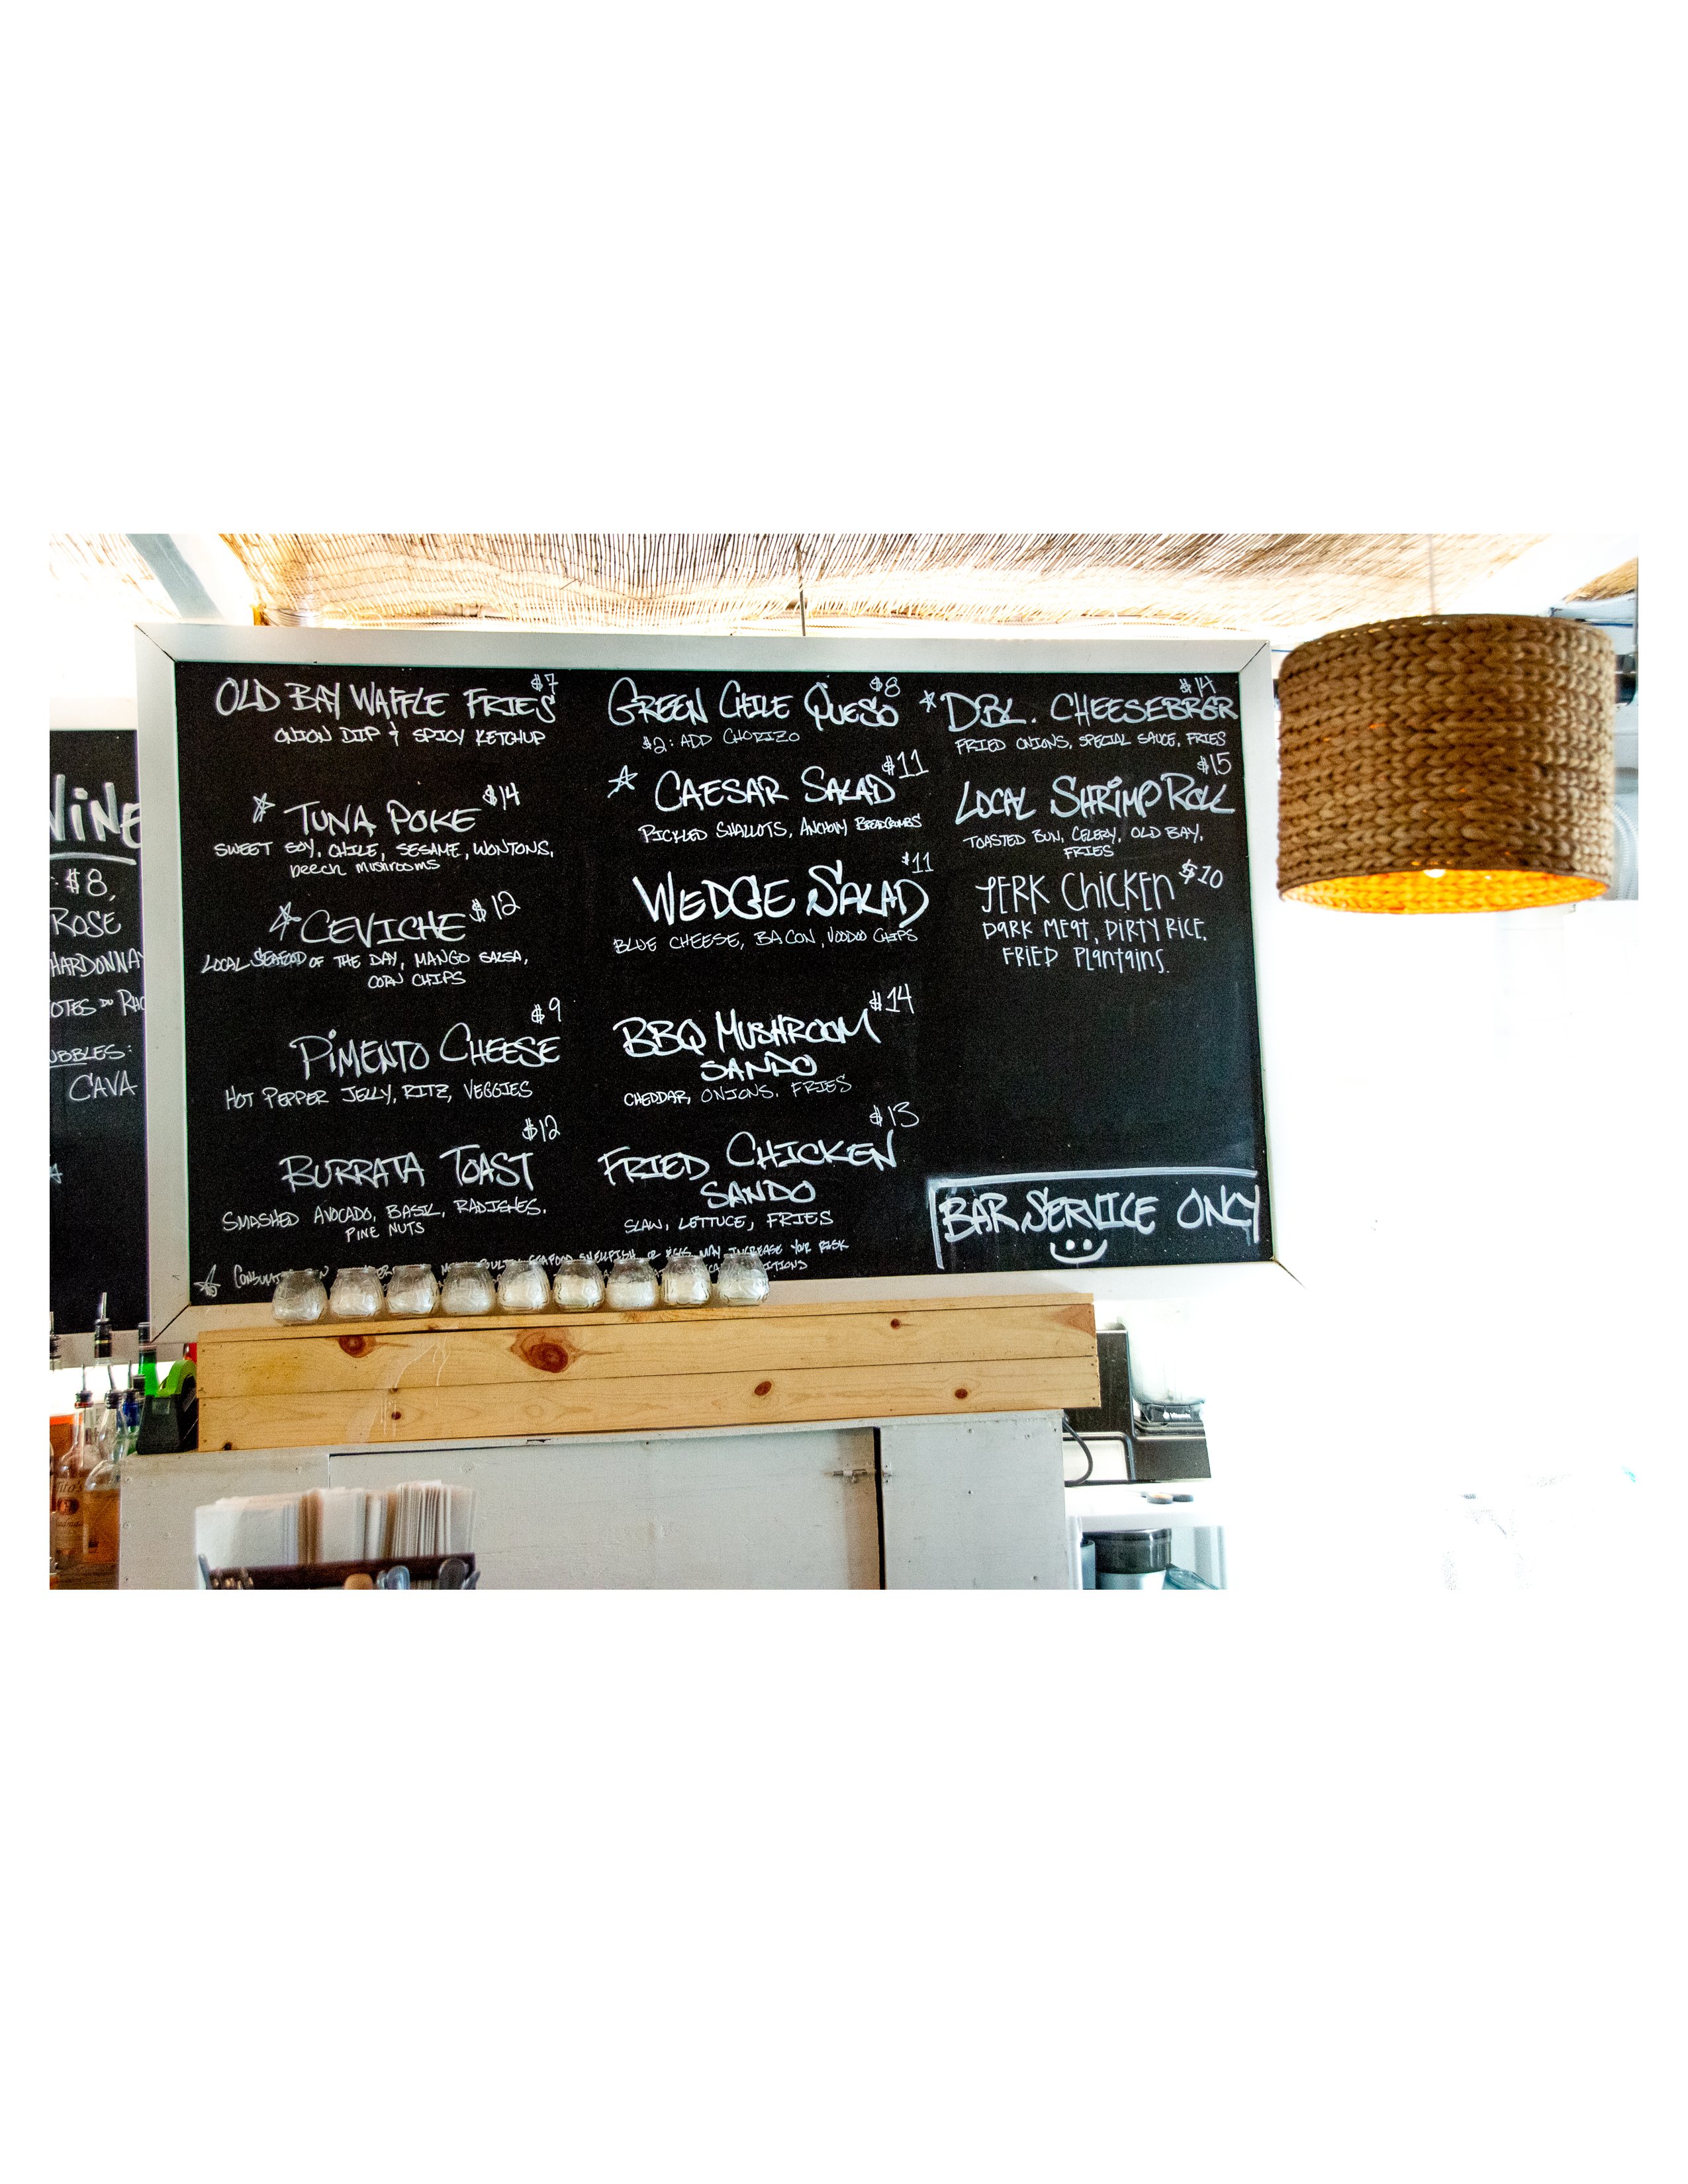 OLD BAY WAFFLE FRIES $7
ONION DIP & SPICY KETCHUP
☆ TUNA POKE $14
SWEET SOY, CHILE, SESAME, WONTONS,
beech mushrooms
☆ CEVICHE $12
LOCAL SEAFOOD OF THE DAY, MANGO SALSA,
CORN CHIPS
PIMENTO CHEESE $9
HOT PEPPER JELLY, RITZ, VEGGIES
BURRATA TOAST $12
SMASHED AVOCADO, BASIL, RADISHES.
PINE NUTS
GREEN CHILE QUESO $8
$2: ADD CHORIZO
☆ CAESAR SALAD $11
PICKLED SHALLOTS, ANCHOVY BREADCRUMBS
WEDGE SALAD $11
BLUE CHEESE, BACON, VOODOO CHIPS
BBQ MUSHROOM $14
SANDO
CHEDDAR, ONIONS, FRIES
FRIED CHICKEN $13
SANDO
SLAW, LETTUCE, FRIES
☆ DBL. CHEESEBRGR $14
FRIED ONIONS, SPECIAL SAUCE, FRIES
LOCAL SHRIMP ROLL $15
TOASTED BUN, CELERY, OLD BAY,
FRIES
JERK CHICKEN $10
DARK MEAT, DIRTY RICE,
FRIED PLANTAINS.
BAR SERVICE ONLY
SEAFOOD SHELLFISH OR EGGS MAY INCREASE YOUR RISK
$8,
ROSE
CAVA